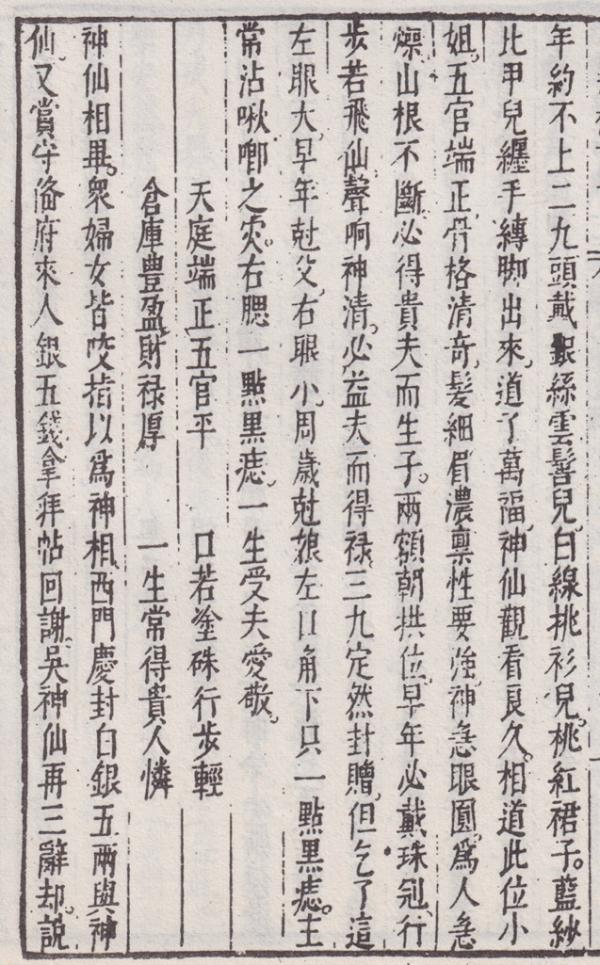 年約不上二九頭戴銀絲雲髻兒白線挑衫兒桃紅裙子藍紗
比甲兒纒手縳脚出來道了萬福神仙觀看良久相道此位小
姐五官端正骨格清奇髮細眉濃禀性要強神急眼圓爲人急
燥山根不斷必得貴夫而生子兩額朝拱位早年必戴珠冠行
步若飛仙聲响神清必益夫而得禄三九定然封贈但乞了這
左眼大早年尅父右眼小周歳尅娘左口角下只一點黑痣主
常沾啾唧之灾右腮一點黑痣一生受夫愛敬
天庭端正五官平　口若塗硃行步輕
倉庫豊盈財禄厚　一生常得貴人憐
神仙相畢衆婦女皆咬指以爲神相西門慶封白銀五兩與神
仙又賞守俻府來人銀五錢拿拜帖回謝吳神仙再三辭却說